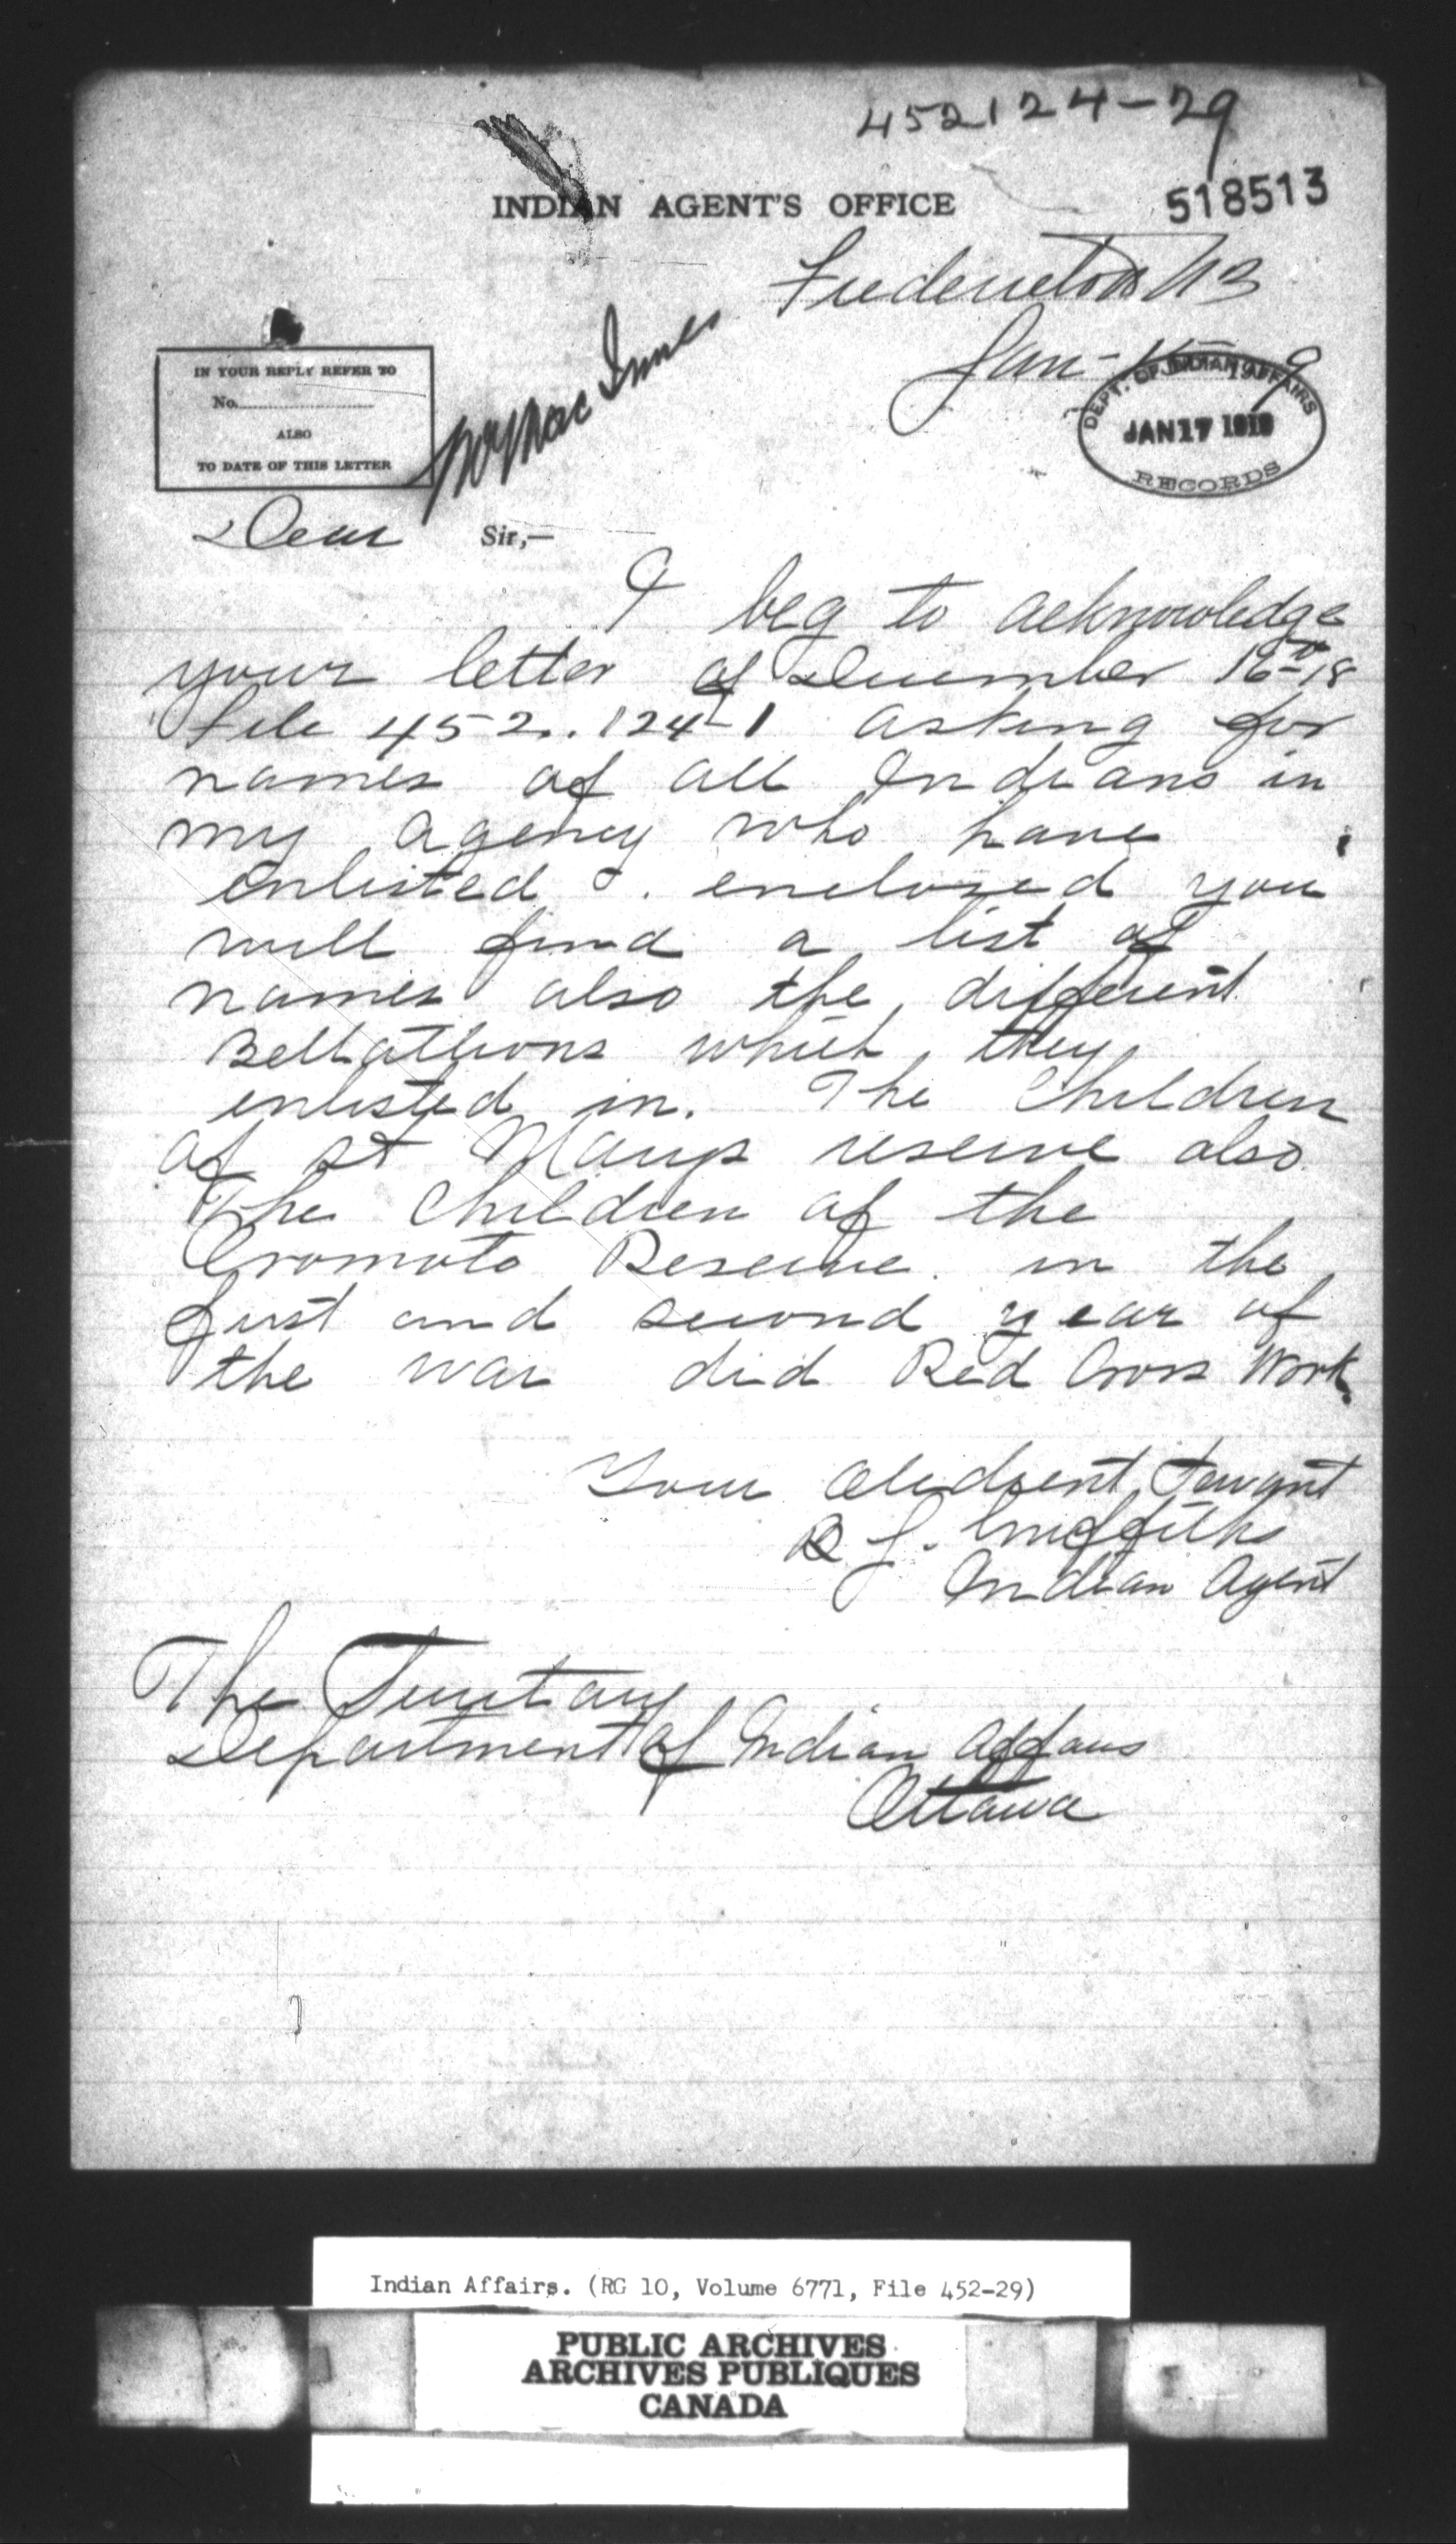 452124-29
INDIAN AGENT'S OFFICE
518513
Fredericton NB
Jan-
DEPT. OF INDIAN AFFAIRS
JAN 17 1919
RECORDS
IN YOUR REPLY REFER TO
No.
ALSO
TO DATE OF THIS LETTER
MacInnes
Dear Sir,—
I beg to acknowledge
your letter of December 16th 18
file 452..124-1 asking for
names of all Indians in
my agency who have
enlisted. enclosed you
will find a list of
names also the different
Bellathions which they
enlisted in. The Children
of St Marys reserve also
The Children of the
Oromoto Reserve in the
first and second year of
the war did Red Cross Work.
Your Obedient Servant
J. Griffiths
Indian Agent
The Secretary
Department of Indian Affairs
Ottawa
Indian Affairs. (RG 10, Volume 6771, File 452-29)
PUBLIC ARCHIVES
ARCHIVES PUBLIQUES
CANADA